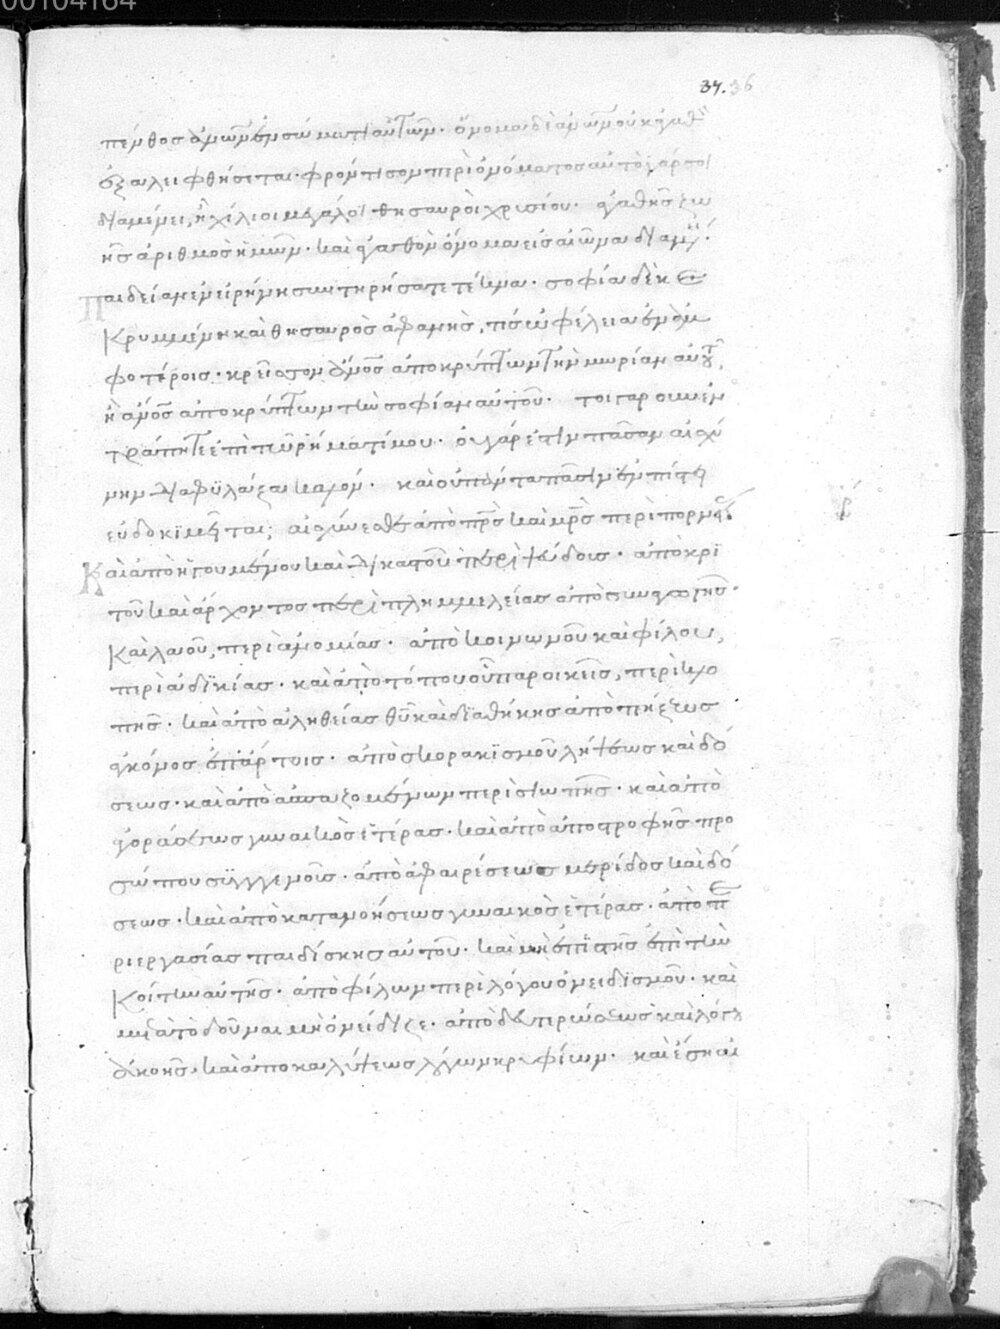 00104164
37. 36
πένθος ἀνων ἐν σώματι αὐτῶν· ὄνομα δὲ ἀνων οὐκ ἀγαθὸν
ἐξαλειφθήσεται· φρόντισον περὶ ὀνόματος αὐτὸ γάρ σοι
διαμένει, ἢ χίλιοι μεγάλοι θησαυροὶ χρυσίου· ἀγαθῆς ζω
ῆς ἀριθμὸς ἡμερῶν· καὶ ἀγαθὸν ὄνομα εἰς αἰῶνα διαμένει·
Παιδείαν ἐν εἰρήνη συντηρήσατε τέκνα· σοφία δὲ κε
κρυμμένη καὶ θησαυρὸς ἀφανὴς, τίς ὠφέλεια ἐν ἀμ
φοτέροις· κρεῖσσον ἄνος ἀποκρύπτων τὴν μωρίαν αὐτοῦ,
ἢ ἄνος ἀποκρύπτων τὴν σοφίαν αὐτοῦ· τοιγαροῦν ἐν
τράπητε ἐπὶ τῶ ῥήματί μου· οὐ γάρ ἐστιν πᾶσαν αἰσχύ
νην διαφυλάξαι καλόν· καὶ οὐ πάντα πᾶσιν ἐν πίστει
εὐδοκιμεῖται; αἰσχύνεσθε ἀπὸ πρς καὶ μρς περὶ πορνείας
Καὶ ἀπὸ ἡγουμένου καὶ δυνάτου περὶ ψεύδους· ἀπὸ κρι
τοῦ καὶ ἄρχοντος περὶ πλημμελείας ἀπὸ συναγωγῆς·
καὶ λαοῦ, περὶ ἀνομίας· ἀπὸ κοινωνοῦ καὶ φίλου,
περὶ ἀδικίας· καὶ ἀπὸ τόπου οὗ παροικεῖς, περὶ κλο
πῆς· καὶ ἀπὸ ἀληθείας θυ καὶ διαθήκης ἀπὸ πήξεως
ἀγκῶνος ἐπ' ἄρτοις· ἀπὸ σκορακισμοῦ λήψεως καὶ δό
σεως· καὶ ἀπὸ ἀσπαζομένων περὶ σιωπῆς· καὶ ἀπὸ
ὁράσεως γυναικὸς ἑτέρας· καὶ ἀπὸ ἀποστροφῆς προ
σώπου συγγενοῦς· ἀπὸ ἀφαιρέσεως μερίδος καὶ δό
σεως· καὶ ἀπὸ κατανοήσεως γυναικὸς ἑτέρας· ἀπὸ πε
ριεργασίας παιδίσκης αὐτοῦ· καὶ μὴ ἐπιστῆς ἐπὶ τὴν
κοίτην αὐτῆς· ἀπὸ φίλων περὶ λόγου ὀνειδισμοῦ· καὶ
μετὰ τὸ δοῦναι μὴ ὀνείδιζε· ἀπὸ δευτερώσεως καὶ λόγου
ἀκοῆς· καὶ ἀποκαλύψεως λόγων κρυφίων· καὶ ἔση αἰ